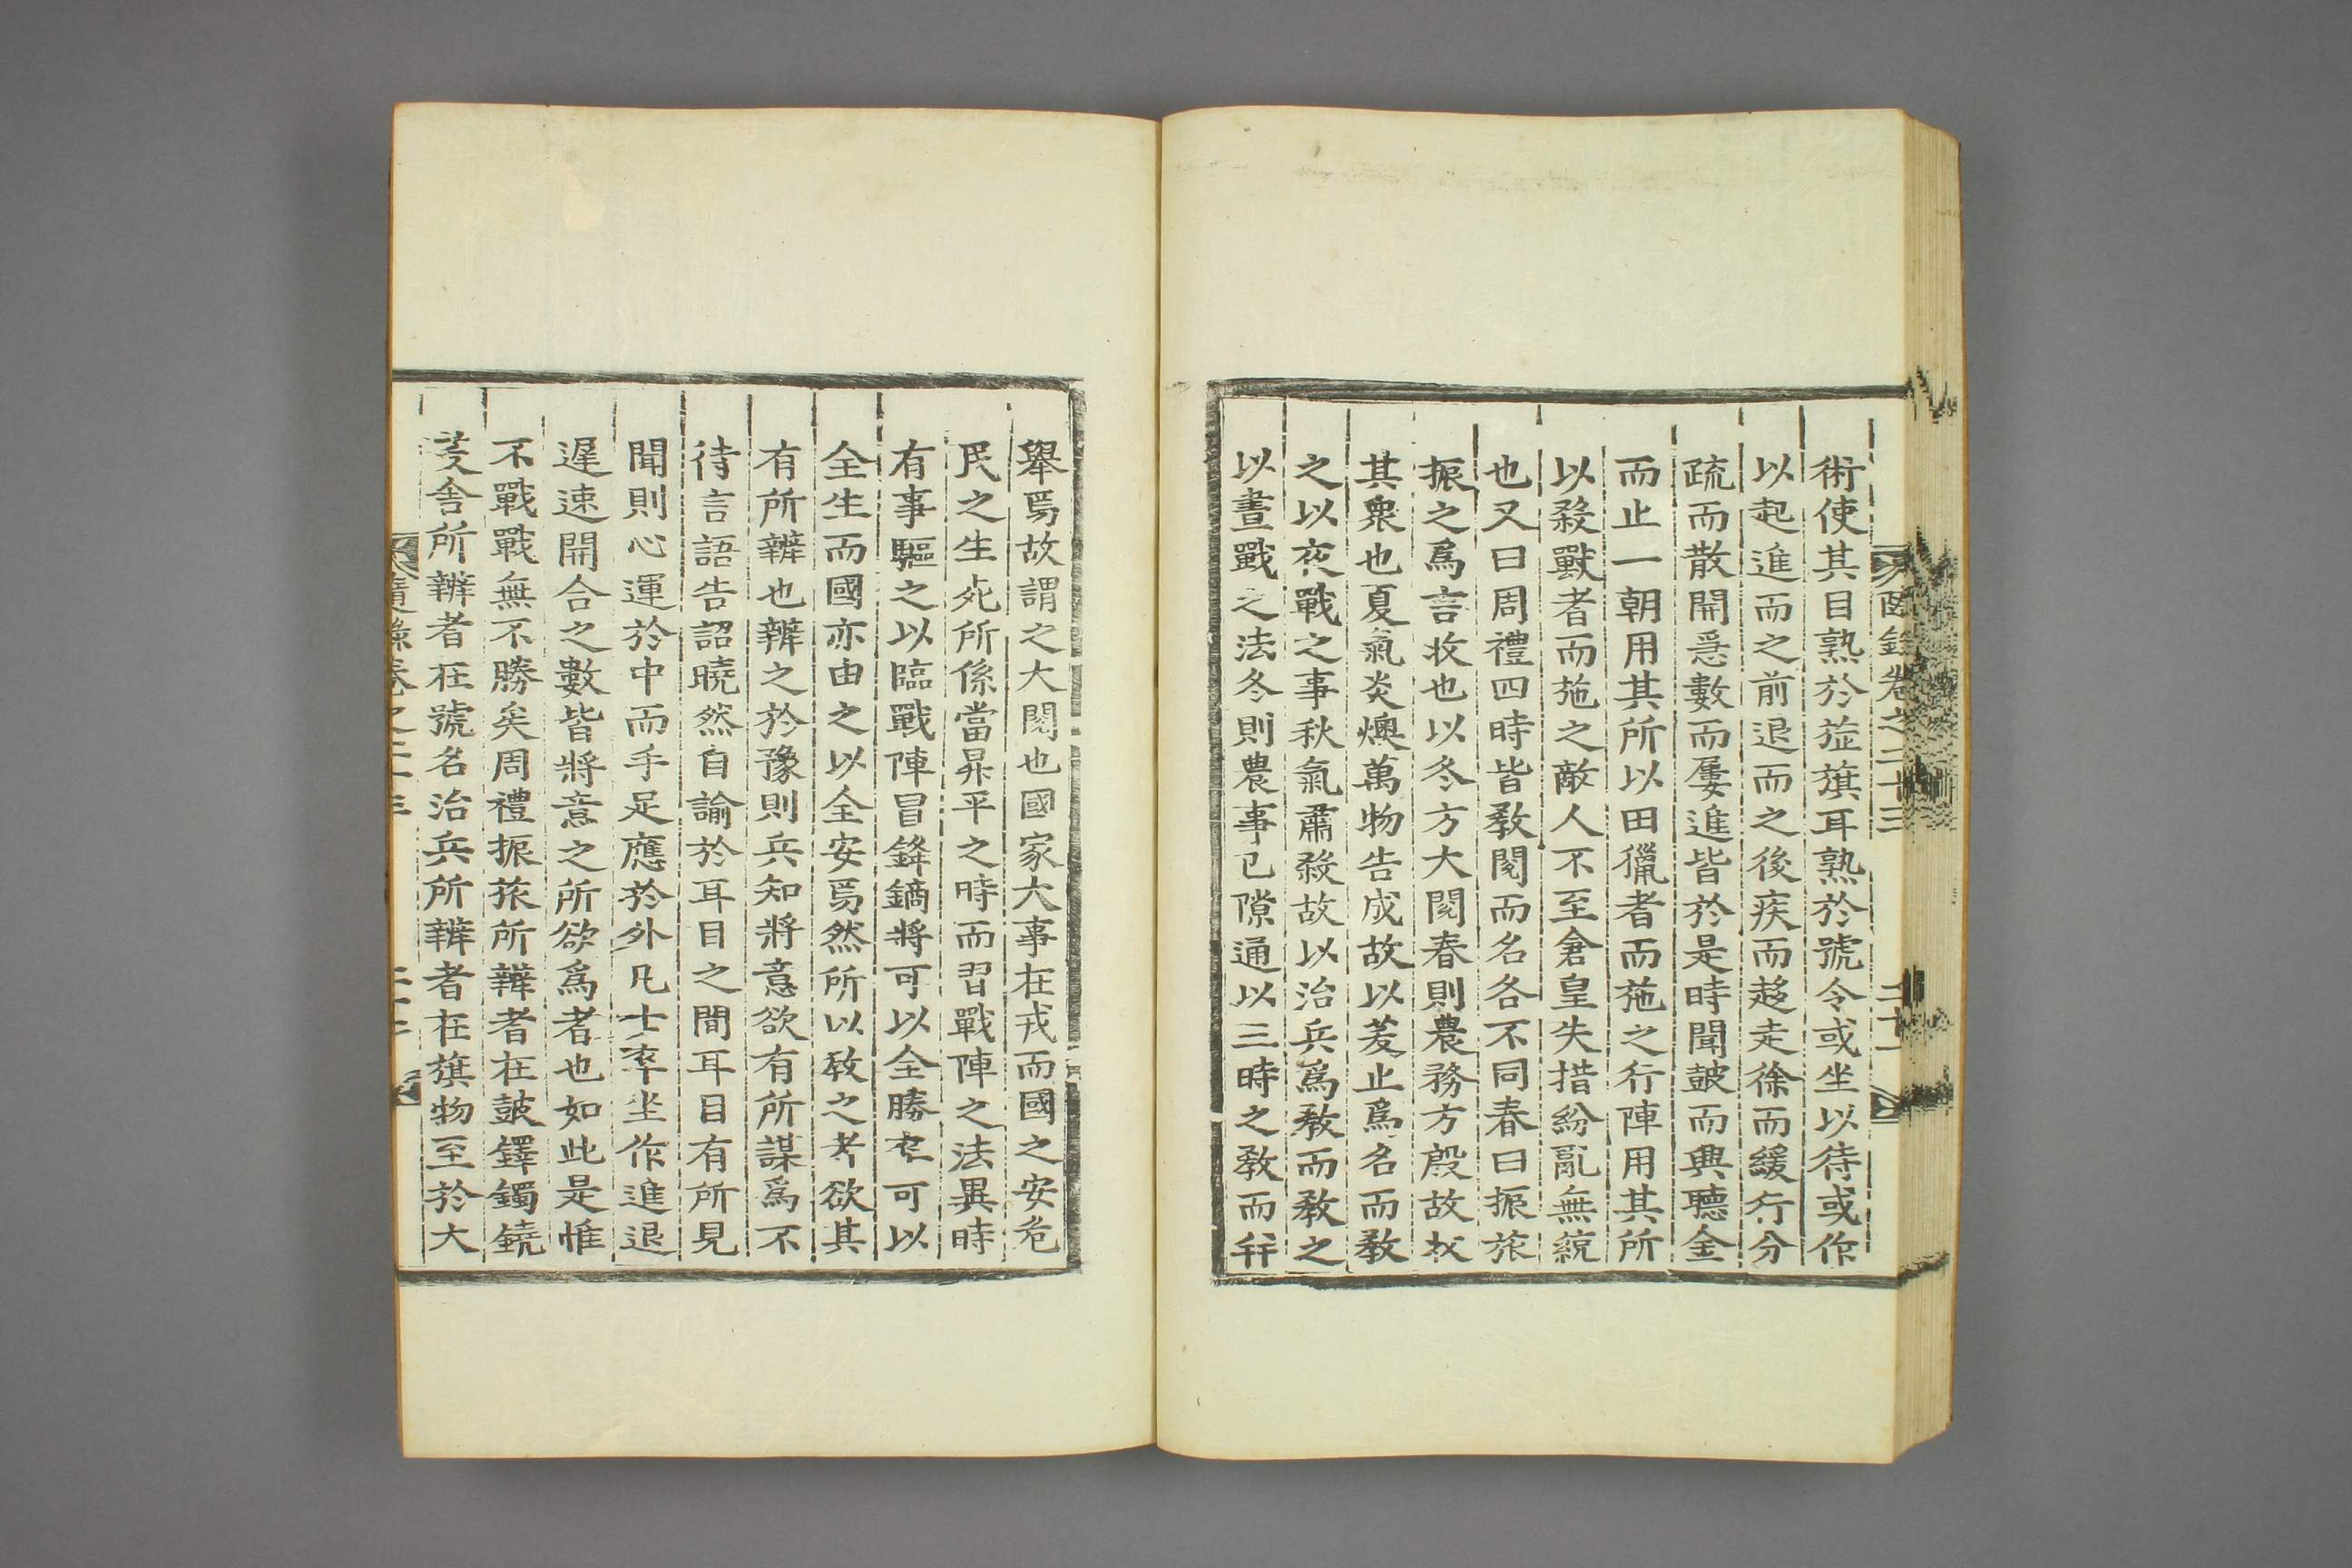 術使其目熟於旌旗耳熟於號令或坐以待或作
以起進而之前退而之後疾而趍走徐而緩行分
疏而散開惡數而屢進皆於是時聞皷而興聽金
而止一朝用其所以田獵者而施之行陣用其所
以殺獸者而施之敵人不至倉皇失措紛亂無統
也又曰周禮四時皆敎閱而名各不同春曰振旅
振之爲言收也以冬方大閱春則農務方殷故収
其衆也夏氣炎燠萬物告成故以茇止爲名而敎
之以夜戰之事秋氣肅殺故以治兵爲敎而敎之
以晝戰之法冬則農事已隙通以三時之敎而幷
擧焉故謂之大閱也國家大事在戎而國之安危
民之生死所係當昇平之時而習戰陣之法異時
有事驅之以臨戰陣冒鋒鏑將可以全勝卒可以
全生而國亦由之以全安焉然所以敎之者欲其
有所辨也辨之於豫則兵知將意欲有所謀爲不
待言語告詔曉然自諭於耳目之間耳目有所見
聞則心運於中而手足應於外凡士卒坐作進退
遲速開合之數皆將意之所欲爲者也如此是惟
不戰戰無不勝矣周禮振旅所辨者在皷鐸鐲鐃
茇舍所辨者在號名治兵所辨者在旗物至於大